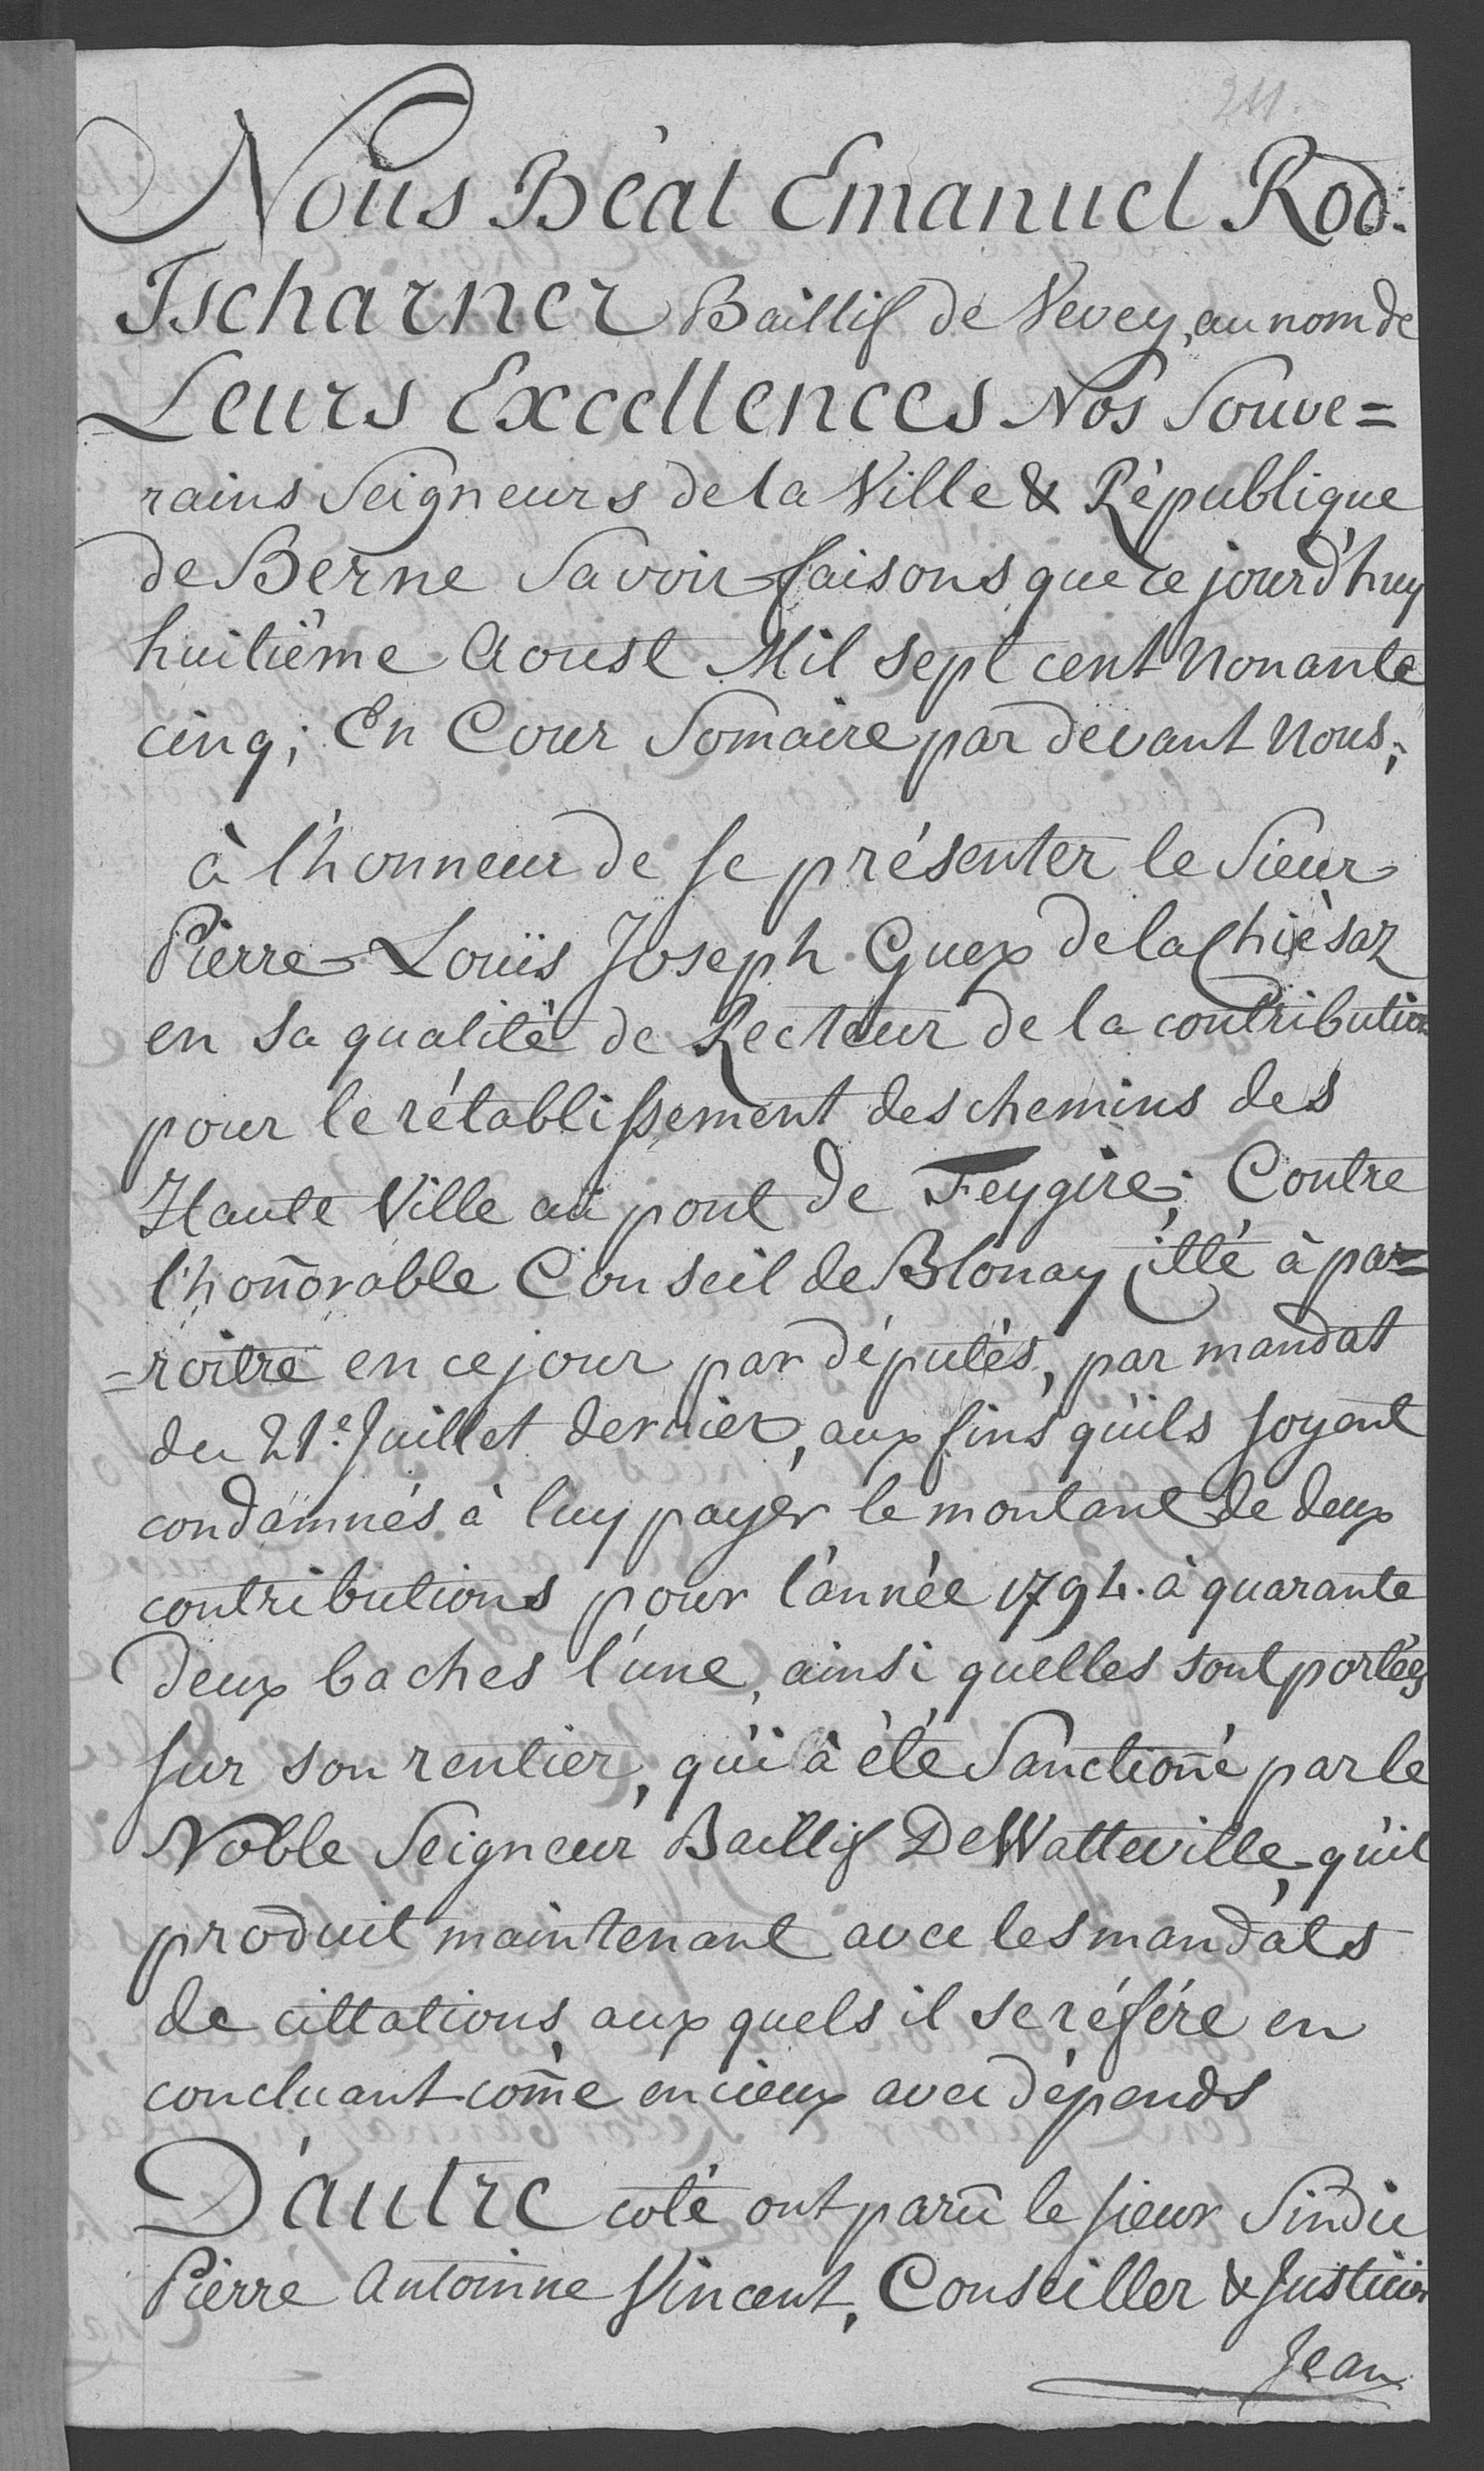 211.
Nous Béat Emanuel Rod:
Tscharner Baillif de Vevey, au nom de
Leurs Excellences Nos Souve=
rains Seigneurs de la Ville & République
de Berne Savoir faisons que ce jourd'huy
huitième Aoust Mil sept cent Nonante
cinq; En Cour Somaire par devant Nous;
à l'honneur de se présenter le Sieur
Pierre Louïs Joseph Guex de la Chièsaz
en sa qualité de Recteur de la contribution
pour le rétablissement des chemins des
Haute Ville au pont de Feygire; Contre
l'honn̄orable Conseil de Blonay cītté à pa=
=roitre en ce jour par députés, par mandat
du 21.e Juillet dernier, aux fins qu'ils soyent
condamnés à luy payer le montant de deux
contributions pour l'année 1794. à quarante
deux baches l'une, ainsi quelles sont portées
sur son rentier, qui à été Sanctioñé par le
Noble Seigneur Baillif DeWatteville, qu'il
produit maintenant avec les mandats
de cittations, aux quels il se réfère en
concluant com̄e en iceux avec dépends
D'autre coté ont parû le sieur Sindic
Pierre Antoinne Vincent, Conseiller & Justicier
Jean